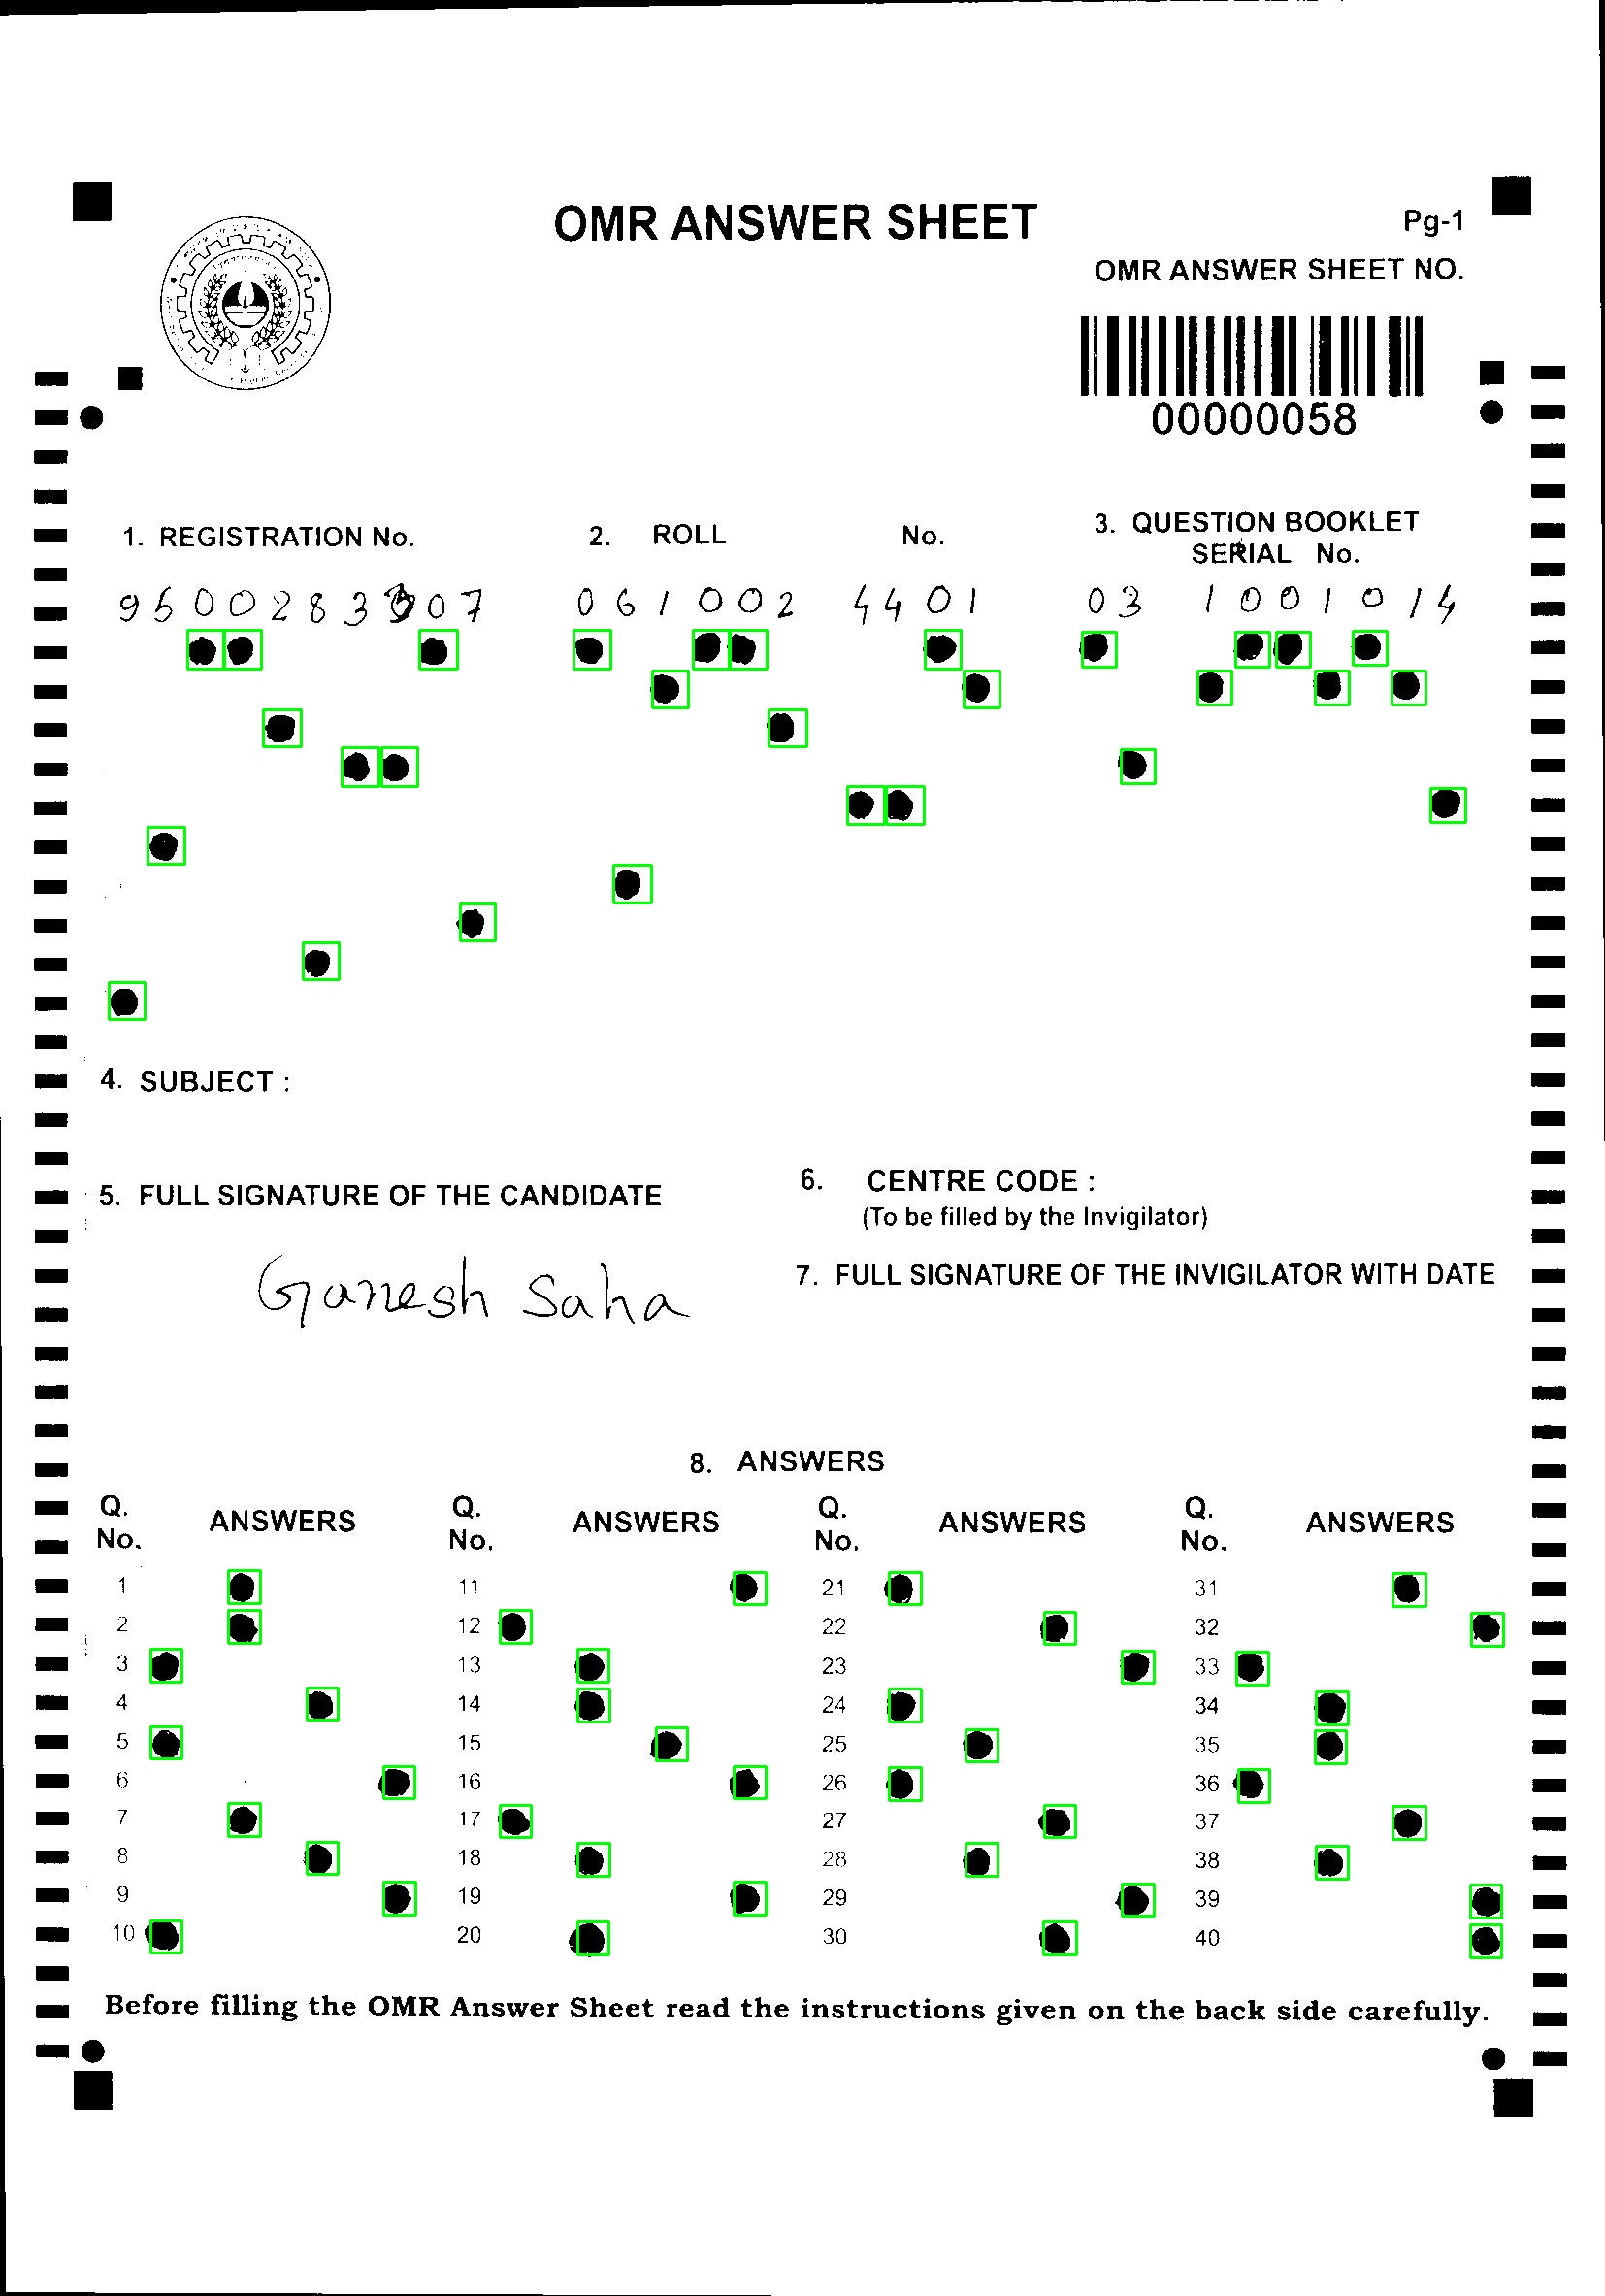 OMR ANSWER SHEET
Pg-1
OMR ANSWER SHEET NO.
00000058
1. REGISTRATION No.
2. ROLL No.
3. QUESTION BOOKLET
SERIAL No.
95002833 07
061002 4401
03 1001014
4. SUBJECT :
5. FULL SIGNATURE OF THE CANDIDATE
Ganesh Saha
6. CENTRE CODE :
(To be filled by the Invigilator)
7. FULL SIGNATURE OF THE INVIGILATOR WITH DATE
8. ANSWERS
Q. No. ANSWERS Q. No. ANSWERS Q. No. ANSWERS Q. No. ANSWERS
1 11 21 31
2 12 22 32
3 13 23 33
4 14 24 34
5 15 25 35
6 16 26 36
7 17 27 37
8 18 28 38
9 19 29 39
10 20 30 40
Before filling the OMR Answer Sheet read the instructions given on the back side carefully.